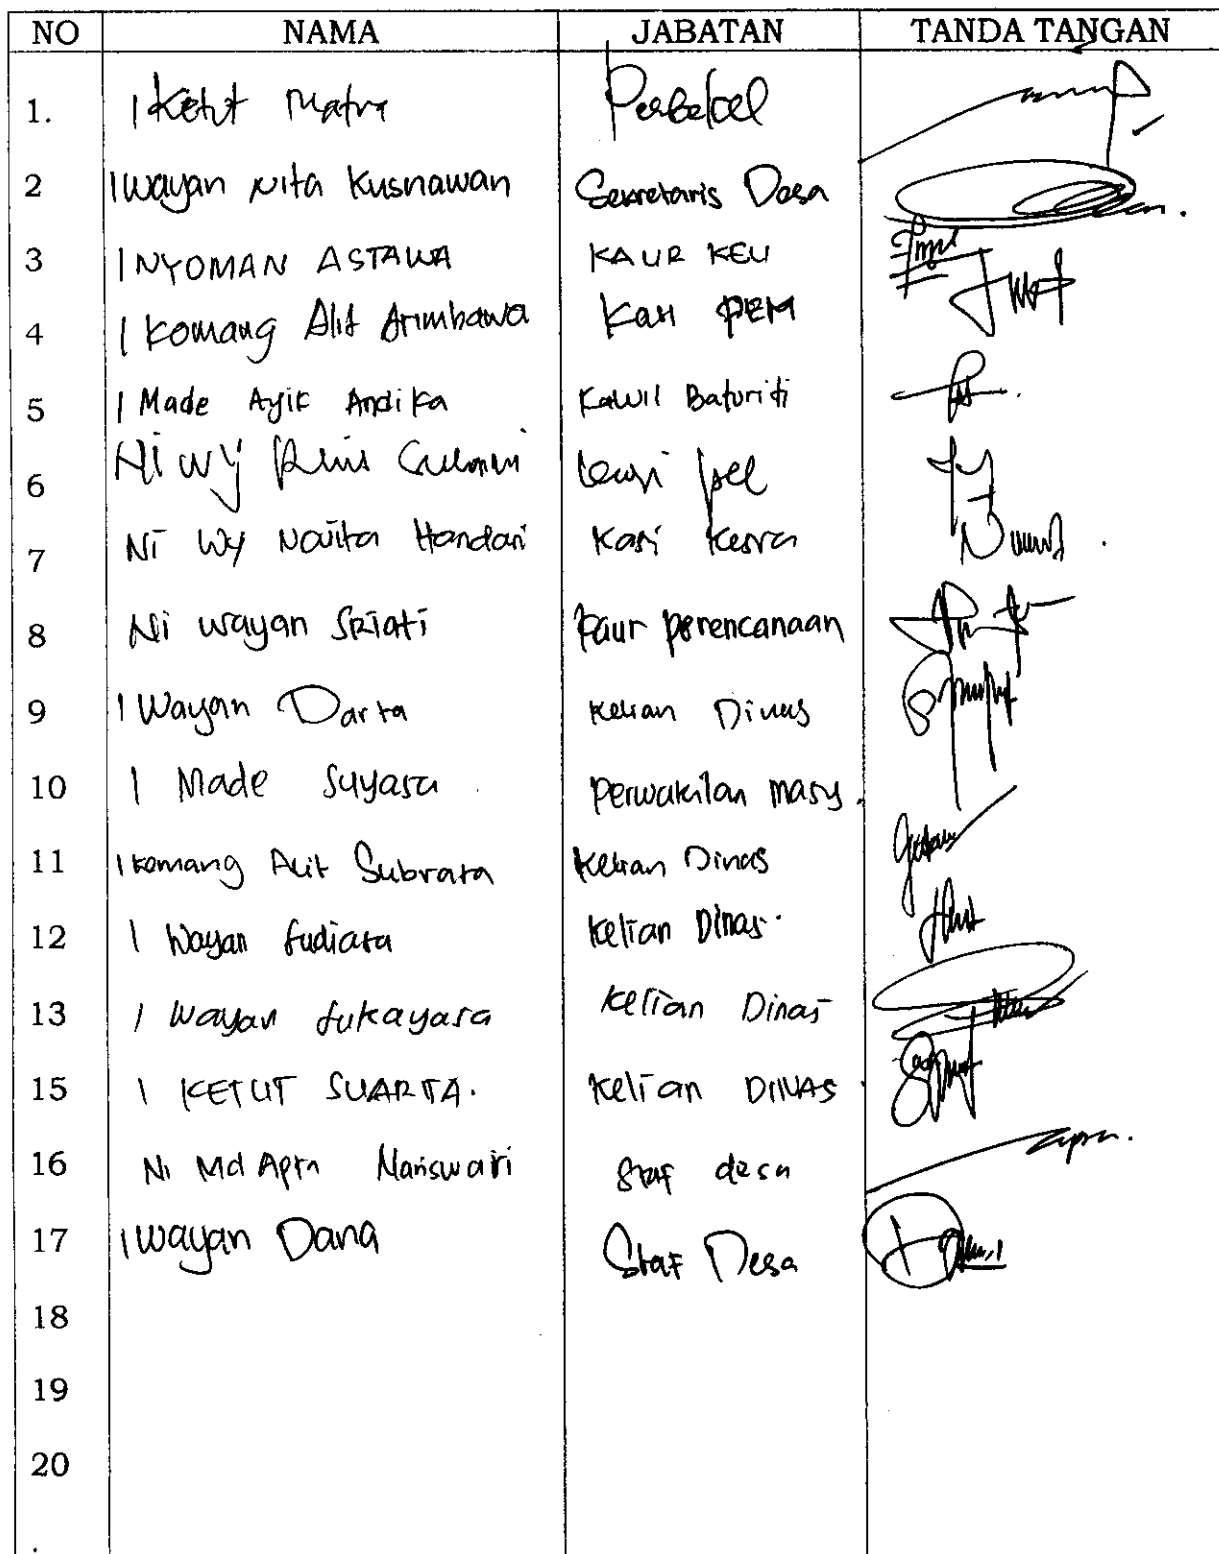 NO NAMA JABATAN TANDA TANGAN
1. I Ketut Matra Perbekel
2 I Wayan Nita Kusnawan Sekretaris Desa
3 I NYOMAN ASTAWA KAUR KEU
4 I Komang Alit Arimbawa Kasi PEM
5 I Made Ayik Andika Kawil Baturiti
6 Ni Wy
7 Ni Wy Novita Handari Kasi Kesra
8 Ni Wayan SRiati Kaur perencanaan
9 I Wayan Darta Kelian Dinas
10 I Made Suyasa perwakilan masy.
11 I Komang Alit Subrata Kelian Dinas
12 I Wayan Sudiasa Kelian Dinas.
13 I Wayan Sukayasa Kelian Dinas
15 I KETUT SUARTA. Kelian DINAS
16 Ni Md Apra Nariswari Staf desa
17 I Wayan Dana Staf Desa
18
19
20